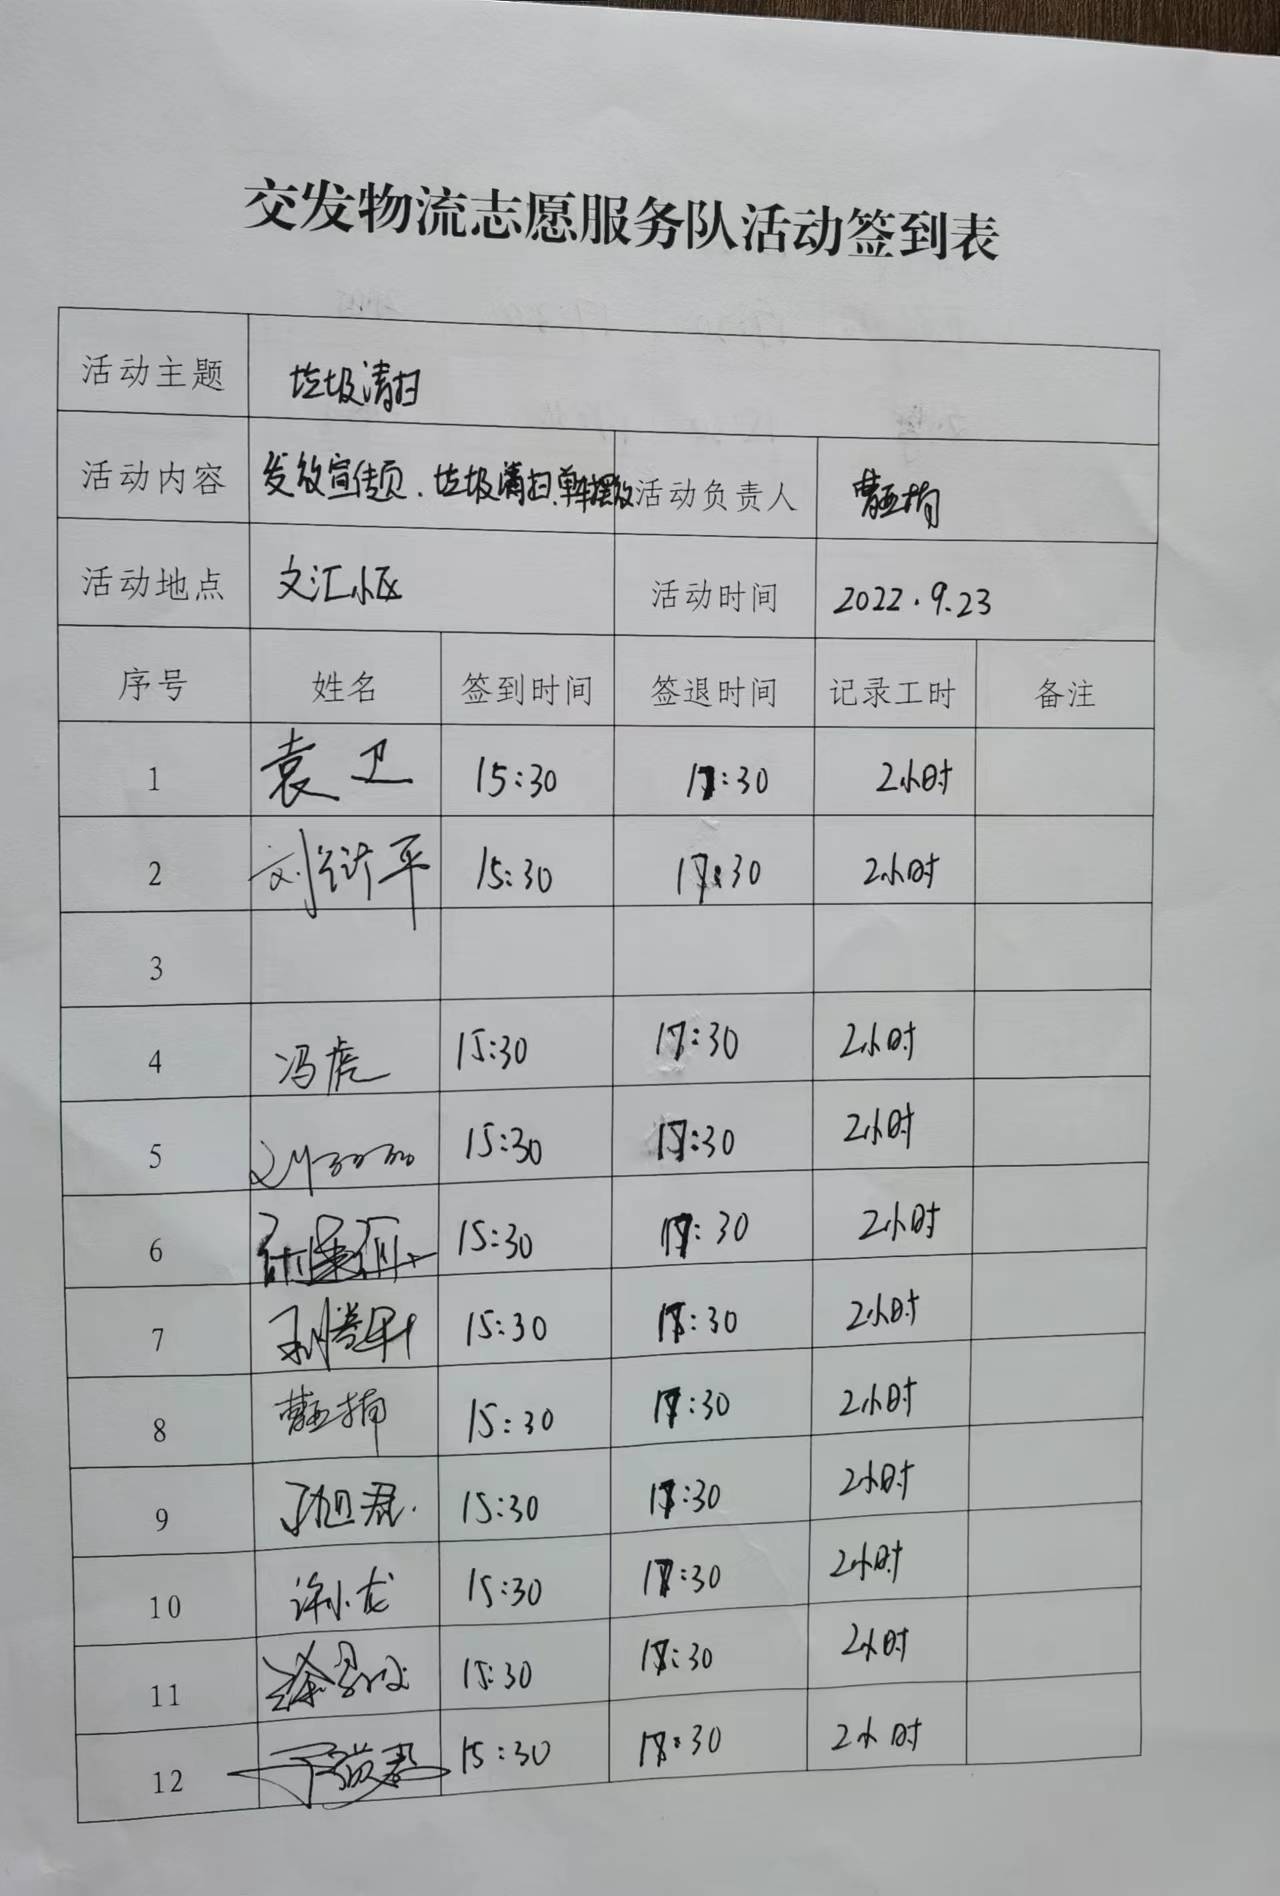 交发物流志愿服务队活动签到表
活动主题 垃圾清扫
活动内容 发放宣传页、垃圾清扫、单车摆放 活动负责人
活动地点 文汇小区 活动时间 2022.9.23
序号 姓名 签到时间 签退时间 记录工时 备注
1 袁卫 15:30 17:30 2小时
2 15:30 17:30 2小时
3
4 冯虎 15:30 17:30 2小时
5 15:30 17:30 2小时
6 15:30 17:30 2小时
7 15:30 17:30 2小时
8 15:30 17:30 2小时
9 15:30 17:30 2小时
10 许小龙 15:30 17:30 2小时
11 15:30 17:30 2小时
12 15:30 17:30 2小时